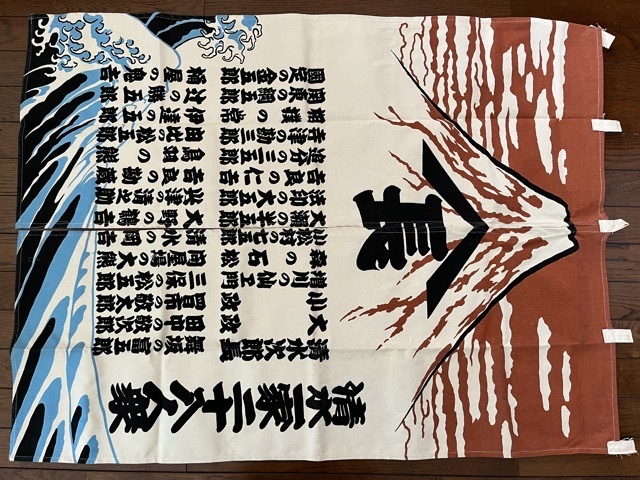 長
清水一家二十八人衆
清水次郎長
大政
小政
増川の仙ヱ門
森の石松
小松村の七五郎
大瀬半五郎
法印の大五郎
吉良の仁吉
追分三五郎
寺津の勘三郎
相撲の常
関東の綱五郎
國定の金五郎
舞坂の富五郎
田中敬次郎
四日市の敬太郎
三保の松五郎
問屋場の大熊
清水の岡吉
大野の鶴吉
興津の清之助
吉良の勘蔵
鳥羽の熊
由比の松五郎
伊達の五郎
辻の勝五郎
桶屋の鬼吉